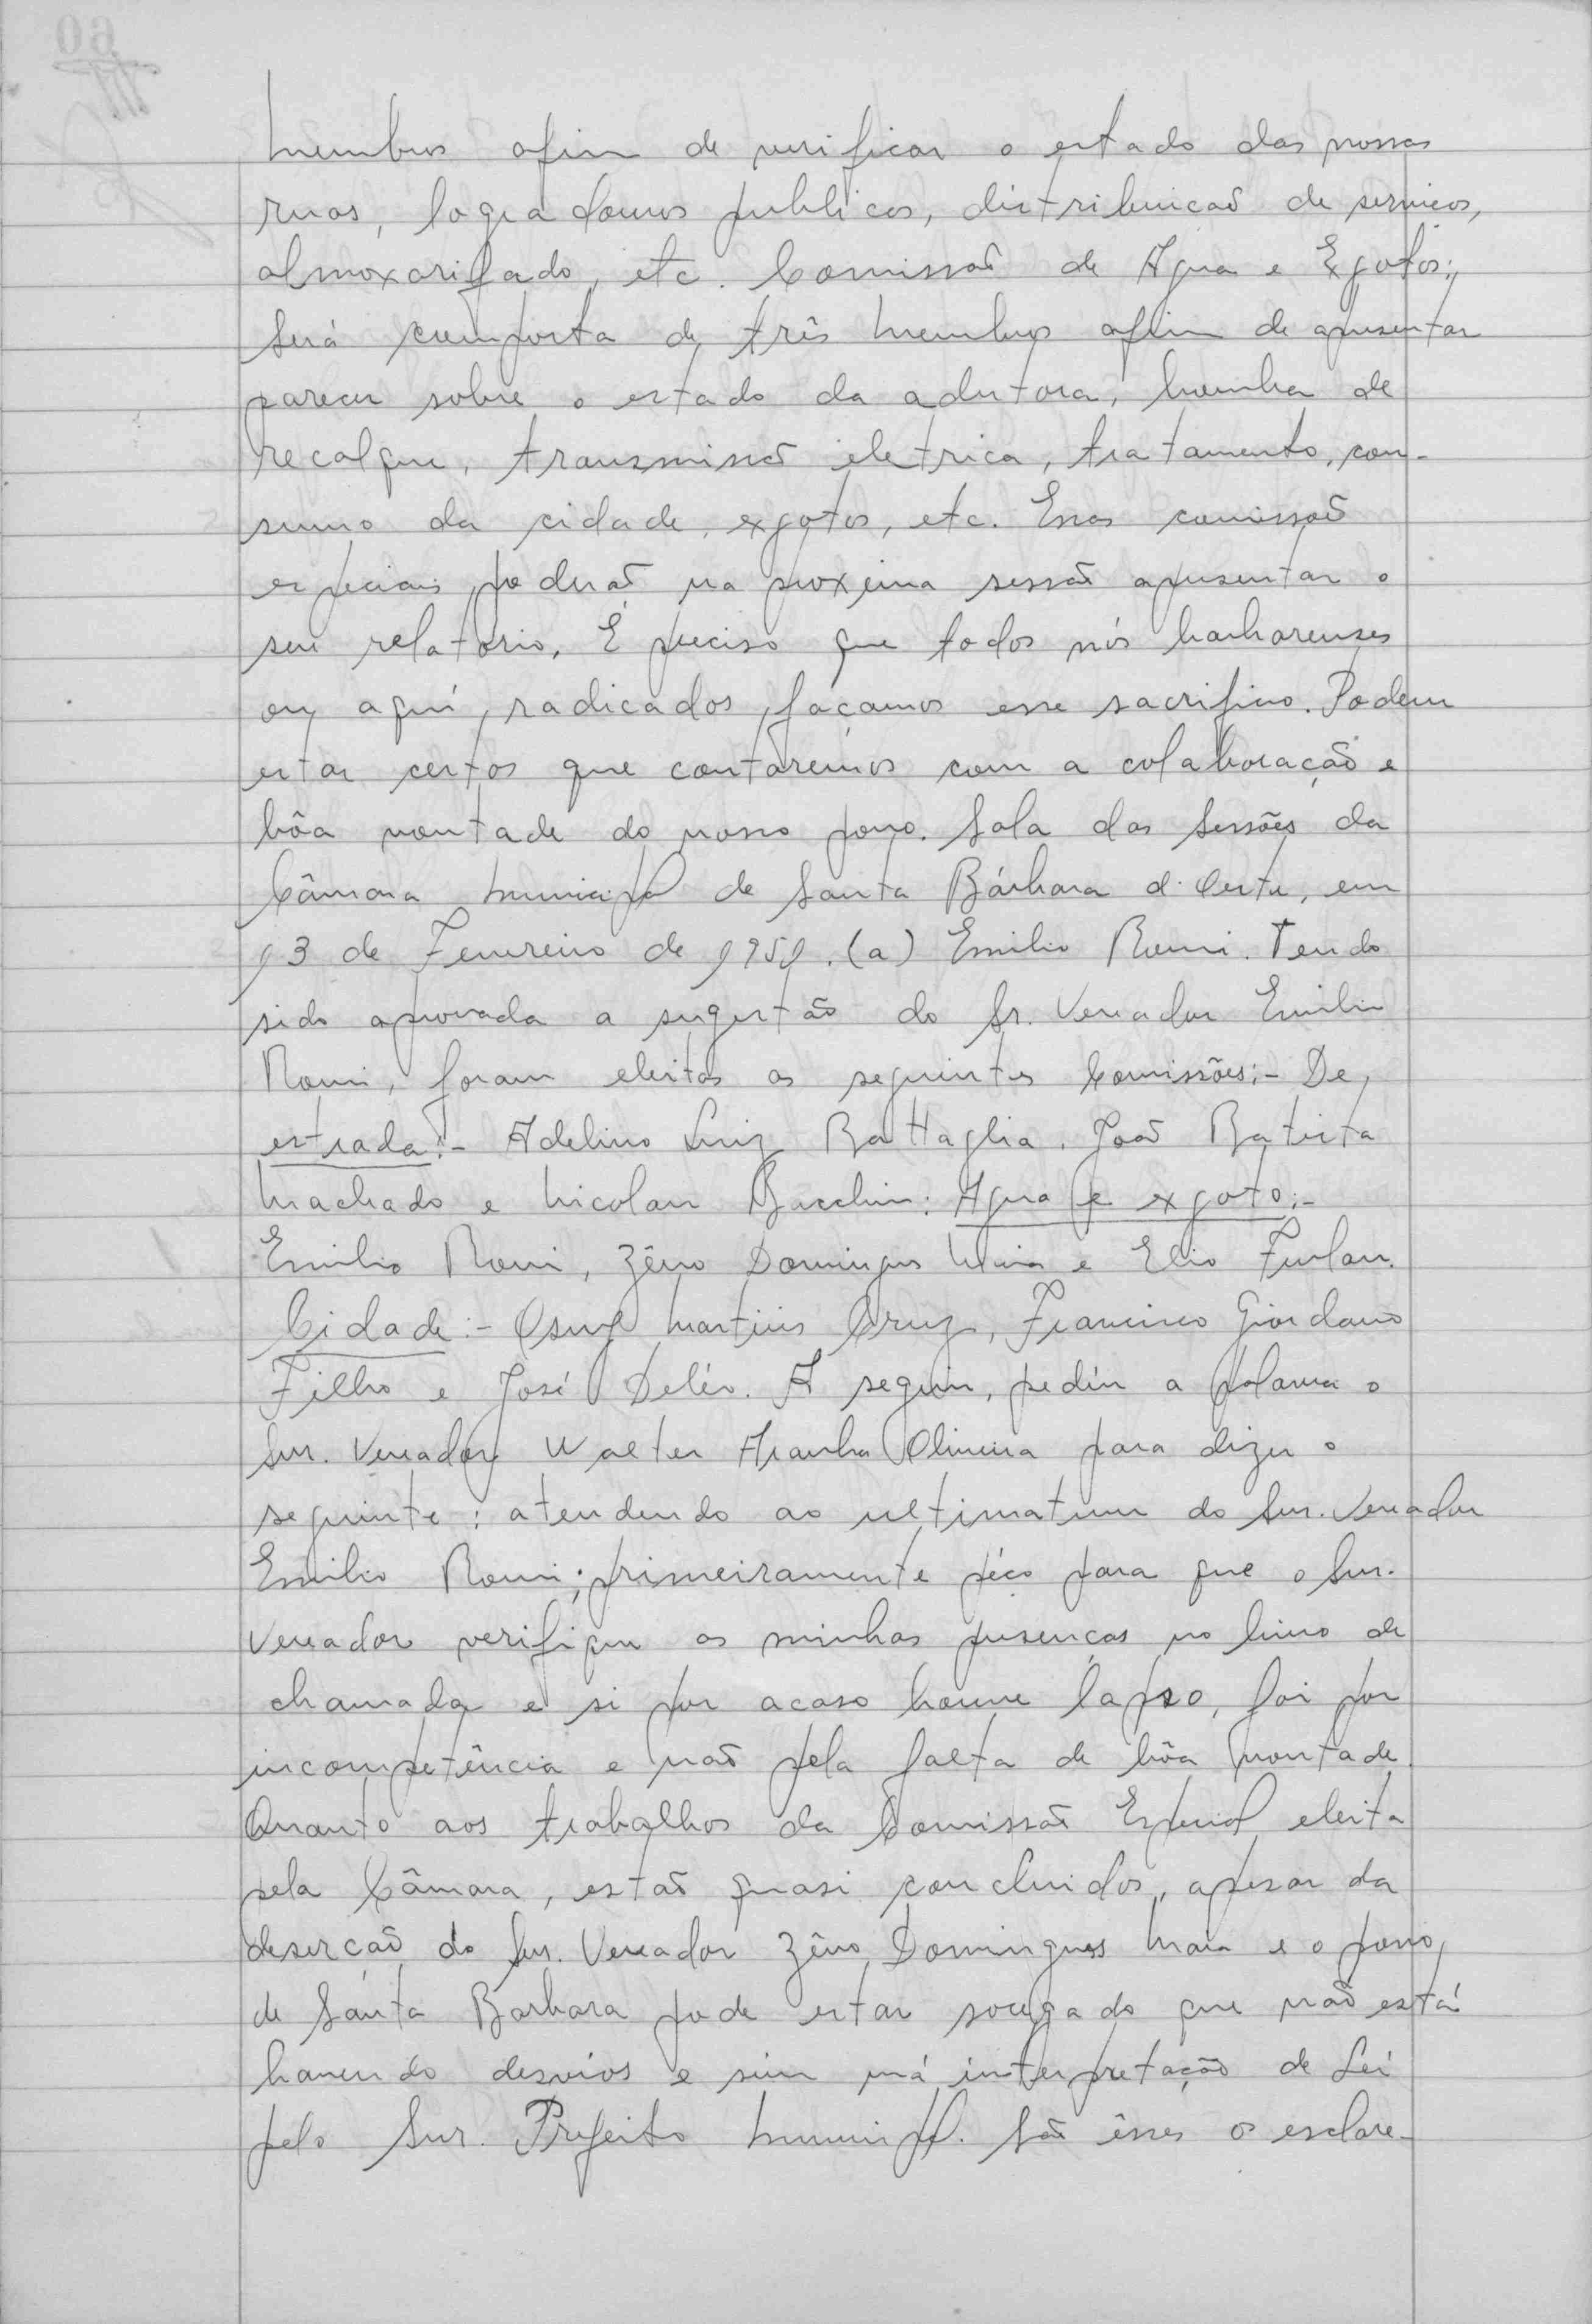 membros afim de verificar o estado das nossas
ruas, logradouros publicos, distribuicaõ de servicos,
almoxarifado, etc. Comissaõ de Agua e Exgotos:,
Será composta de três membros afim de apresentar
parecer sobre o estado da adutora, bomba de
recalque, transmissaõ eletrica, tratamento, con-
sumo da cidade, exgotos, etc. Essas comissaõ
especiais poderaõ na proxima sessaõ apresentar o
seu relatório. É preciso que todos nós barbarenses
ou aquí radicados, façamos esse sacrificio. Podem
estar certos que contaremos com a colaboração e
bôa vontade do nosso povo. Sala das Sessões da
Câmara Municipal de Santa Bárbara d'Oeste, em
13 de Fevereiro de 1951. (a) Emilio Romi. Tendo
sido aprovada a sugestão do Sr. Vereador Emilio
Romi, foram eleitas as seguintes Comissões:- De
estrada:- Adelino Luiz Battaglia, Joaõ Batista
Machado e Nicolau Bacchin: Agua e exgoto:-
Emilio Romi, Zêno Domingues Maia e Elio Furlan.
Cidade:- Osny Martins Cruz, Francisco Giordano
Filho e José Deléo. A seguir, pedíu a palavra o
Snr. Vereador Walter Aranha Oliveira para dizer o
seguinte: atendendo ao ultimatum do Snr. Vereador
Emilio Romi; primeiramente péço para que o Snr.
Vereador verifique as minhas presenças no livro de
chamada e si por acaso houve lapso, foi por
incompetência e naõ pela falta de bôa vontade.
Quanto aos trabalhos da Comissaõ Especial eleita
pela Câmara, estaõ quasi concluidos, apesar da
deserçaõ do Snr. Vereador Zêno Domingues Maia e o povo
de Santa Barbara pode estar socegado que naõ está
havendo desvios e sim má interpretação de Lei
pelo Snr. Prefeito Municipal. Saõ êsses os esclare-